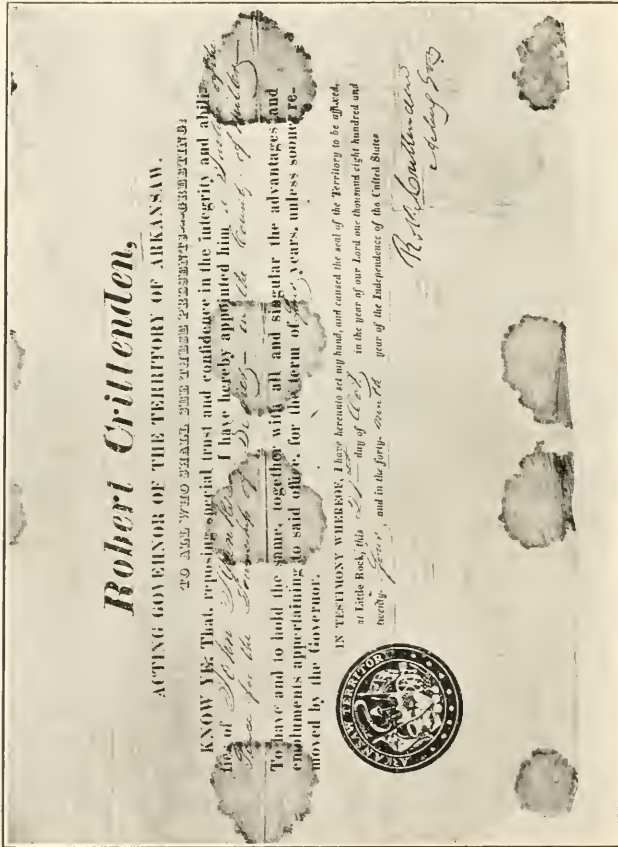 Robert Crittenden,
ACTING GOVERNOR OF THE TERRITORY OF ARKANSAW.
TO ALL WHO SHALL SEE THESE PRESENTS—GREETING:
KNOW YE: That, reposing special trust and confidence in the integrity and abili-
ties of John I have hereby appointed him a Justice of the
Peace for the Township of in the County of
To have and to hold the same, together with all and singular the advantages and
emoluments appertaining to said office, for the term of years, unless sooner re-
moved by the Governor.
IN TESTIMONY WHEREOF, I have hereunto set my hand, and caused the seal of the Territory to be affixed,
at Little Rock, this day of in the year of our Lord one thousand eight hundred and
twenty- four, and in the forty- ninth year of the Independence of the United States
Rob. Crittenden
Acting Gov
ARKANSAW TERRITORY